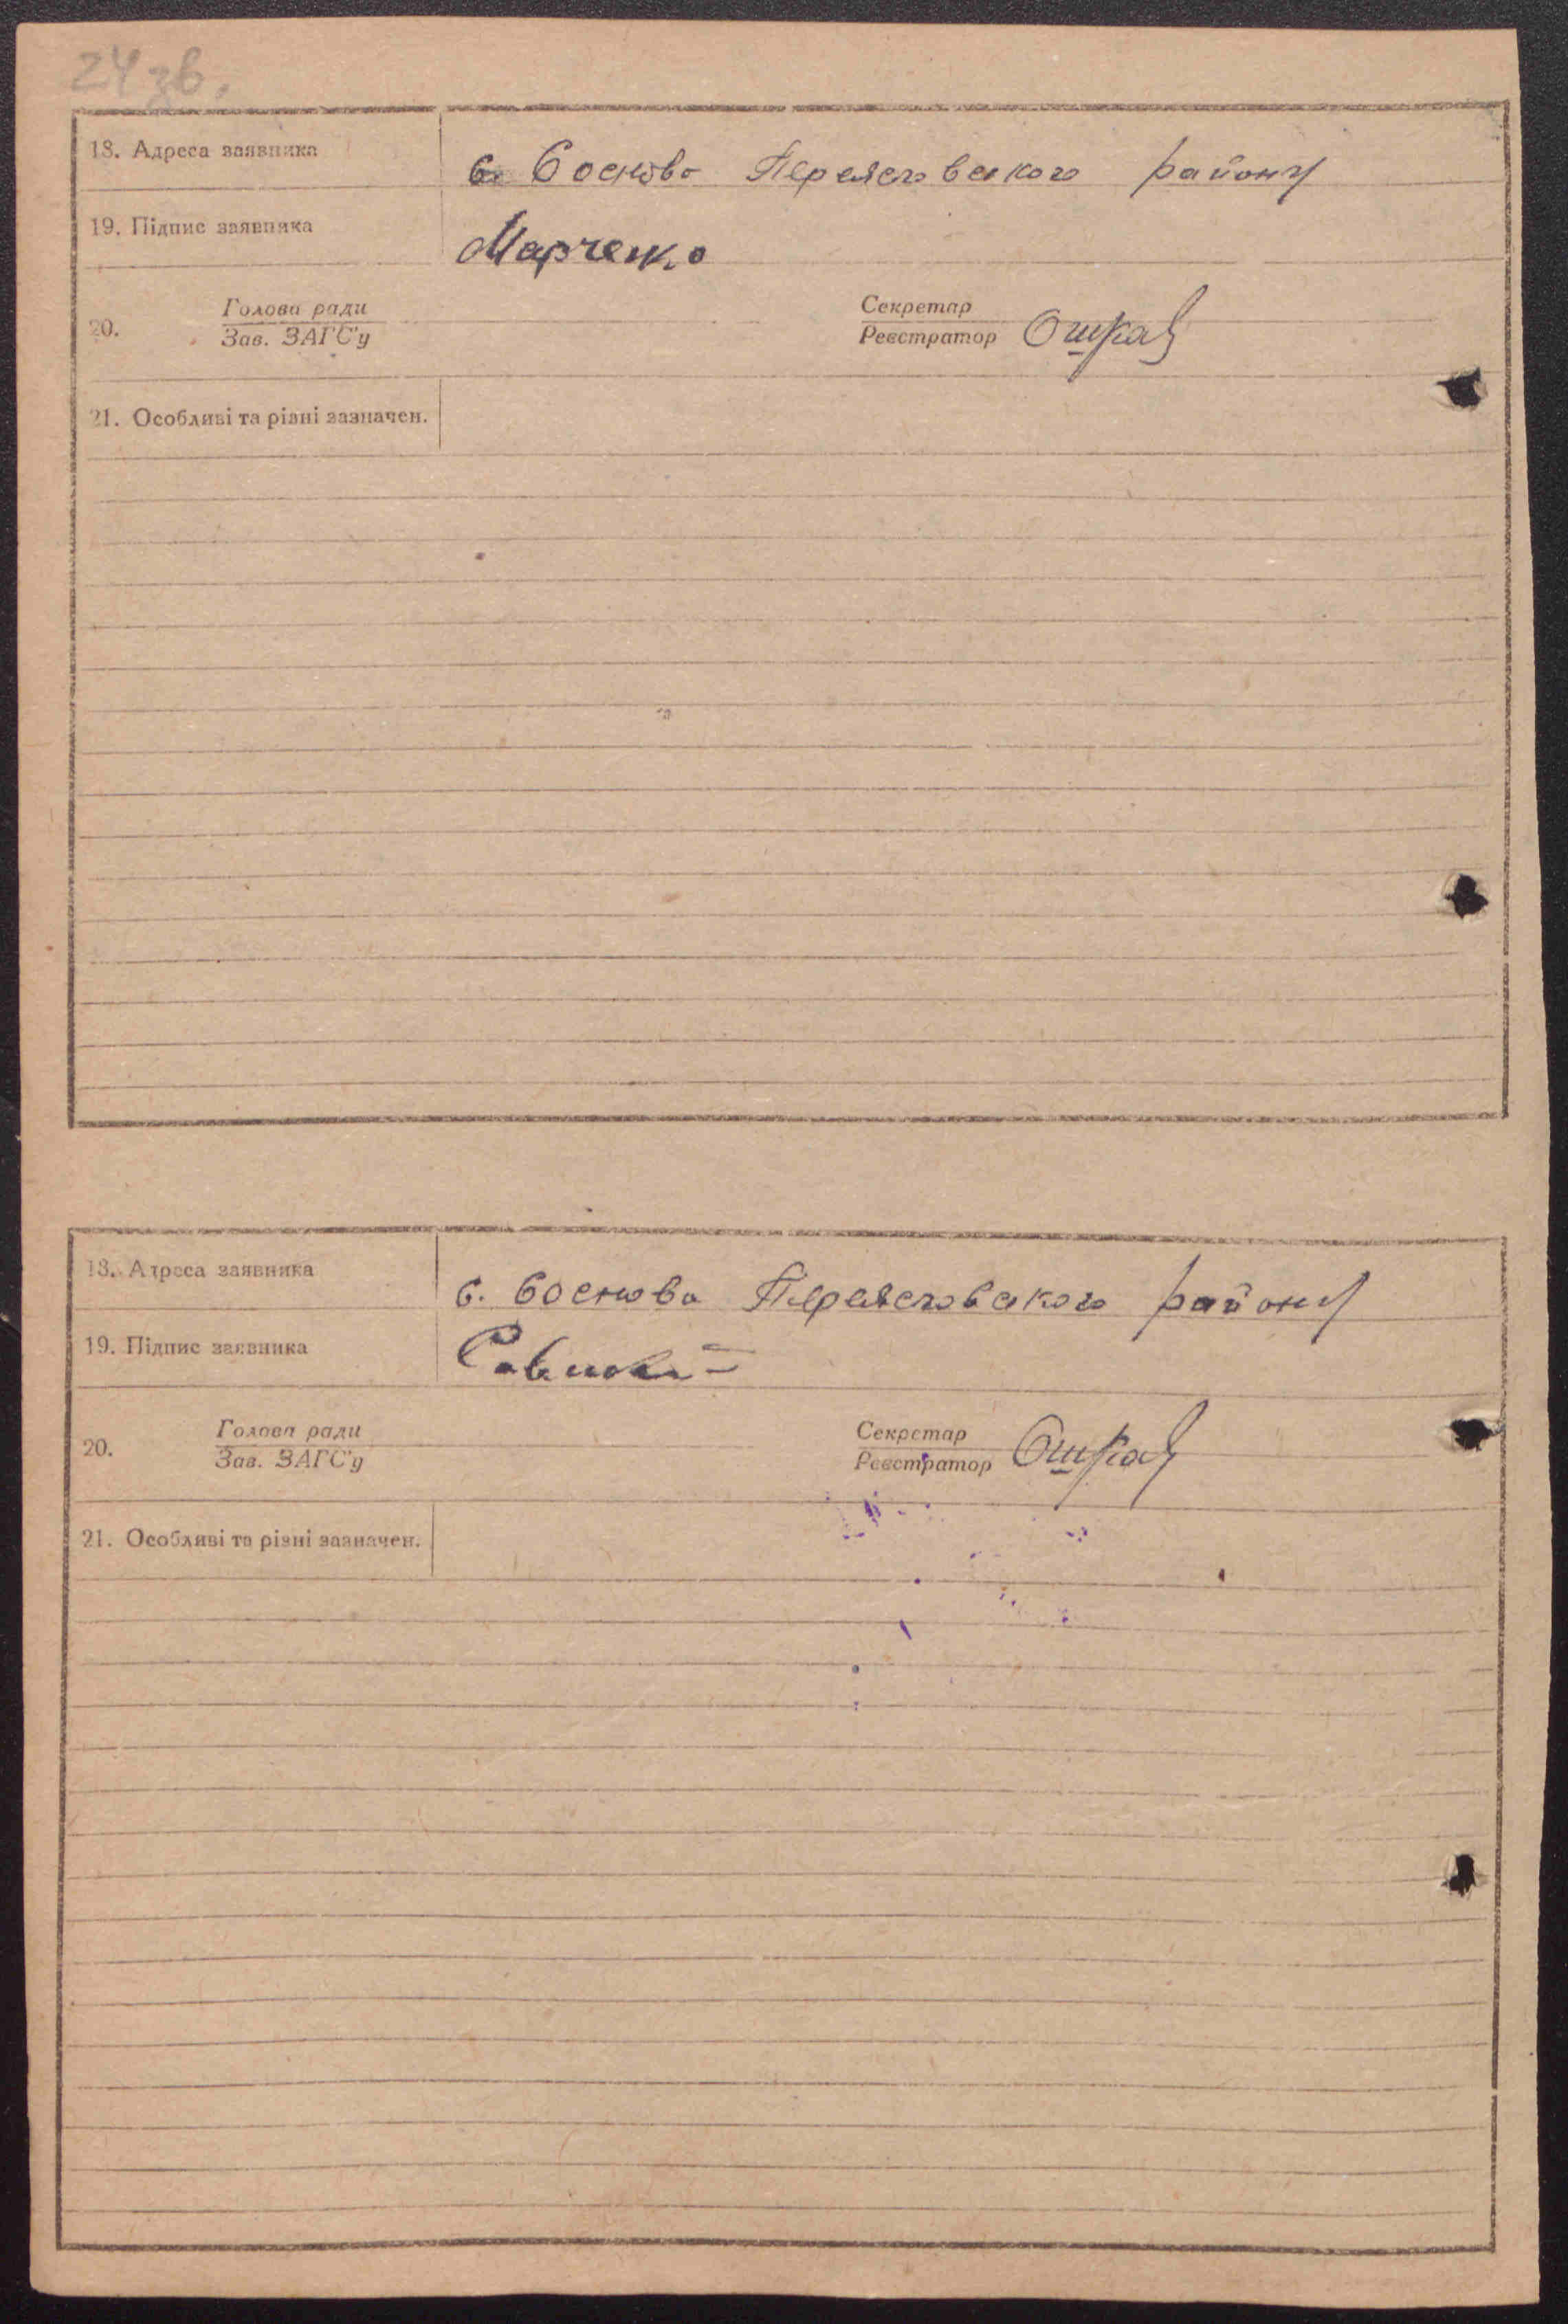 24 зв.
18. Адреса заявника с. Соснова Переяславского району
19. Підпис заявника Марченко
20. Голова ради Секретар
Зав. ЗАГС'у Реєстратор
21. Особливі та різні зазначен.
18. Адреса заявника с. Соснова Переяславского району
19. Підпис заявника
20. Голова ради Секретар
Зав. ЗАГС'у Реєстратор
21. Особливі та різні зазначен.